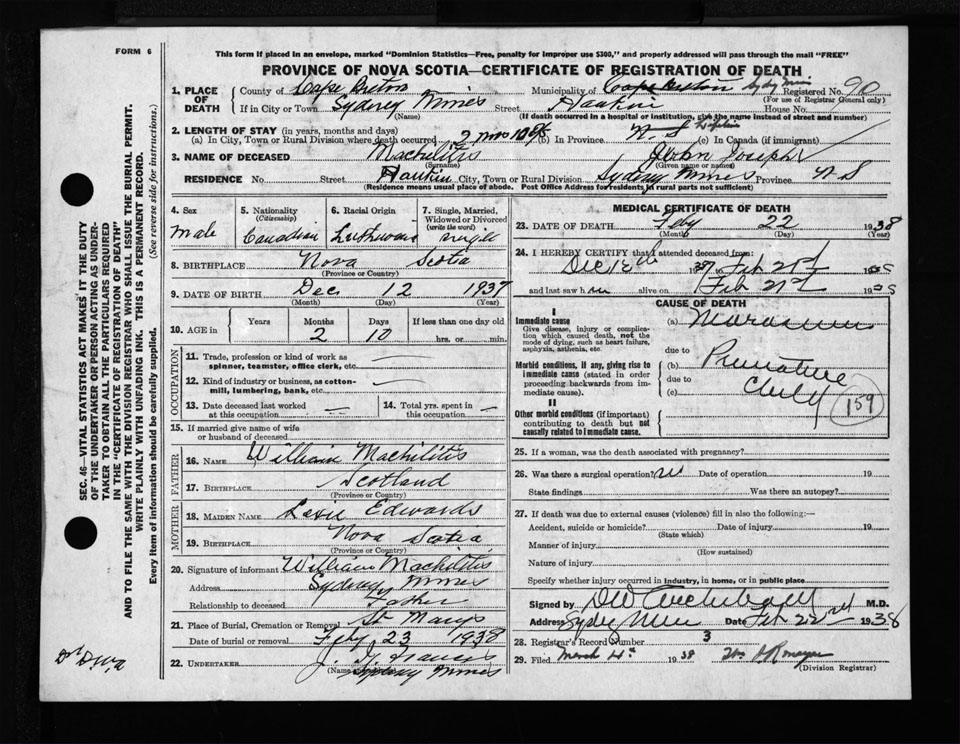 FORM 6
This form if placed in an envelope, marked "Dominion Statistics—Free, penalty for improper use $300," and properly addressed will pass through the mail "FREE"
PROVINCE OF NOVA SCOTIA—CERTIFICATE OF REGISTRATION OF DEATH
SEC. 46—VITAL STATISTICS ACT MAKES IT THE DUTY
OF THE UNDERTAKER OR PERSON ACTING AS UNDER-
TAKER TO OBTAIN ALL THE PARTICULARS REQUIRED
IN THE "CERTIFICATE OF REGISTRATION OF DEATH"
AND TO FILE THE SAME WITH THE DIVISION REGISTRAR WHO SHALL ISSUE THE BURIAL PERMIT.
WRITE PLAINLY WITH UNFADING INK. THIS IS A PERMANENT RECORD.
Every item of information should be carefully supplied. (See reverse side for instructions.)
1. PLACE OF DEATH
County of Cape Breton Municipality of Cape Breton Sydney Mines Registered No. 90
(For use of Registrar General only)
If in City or Town Sydney Mines Street House No.
(Name) (If death occurred in a hospital or institution, give the name instead of street and number)
2. LENGTH OF STAY (in years, months and days)
(a) In City, Town or Rural Division where death occurred 2 mos 10 (b) In Province N-S (c) In Canada (if immigrant)
3. NAME OF DECEASED John Joseph
(Surname) (Given name or names)
RESIDENCE No. Street City, Town or Rural Division Sydney Mines Province N S
(Residence means usual place of abode. Post Office Address for residents in rural parts not sufficient)
4. Sex Male
5. Nationality (Citizenship) Canadian
6. Racial Origin
7. Single, Married, Widowed or Divorced (write the word) single
8. BIRTHPLACE Nova Scotia
(Province or Country)
9. DATE OF BIRTH Dec 12 1937
(Month) (Day) (Year)
10. AGE in Years Months 2 Days 10 If less than one day old
hrs. or min.
OCCUPATION
11. Trade, profession or kind of work as spinner, teamster, office clerk, etc.
12. Kind of industry or business, as cotton-mill, lumbering, bank, etc.
13. Date deceased last worked at this occupation
14. Total yrs. spent in this occupation
15. If married give name of wife or husband of deceased
FATHER
16. NAME William
17. BIRTHPLACE Scotland
(Province or Country)
MOTHER
18. MAIDEN NAME Edwards
19. BIRTHPLACE Nova Scotia
(Province or Country)
20. Signature of informant William
Address Sydney Mines
Relationship to deceased Father
21. Place of Burial, Cremation or Removal St Marys
Date of burial or removal Feby 23 1938
22. UNDERTAKER J. Francis
(Name) Sydney Mines
MEDICAL CERTIFICATE OF DEATH
23. DATE OF DEATH Feby 22 1938
(Month) (Day) (Year)
24. I HEREBY CERTIFY that I attended deceased from:
Dec 37 to Feb 21st 1938
and last saw h alive on Feb 21st 1938
CAUSE OF DEATH
I
Immediate cause
Give disease, injury or complication which caused death, not the mode of dying, such as heart failure, asphyxia, asthenia, etc.
(a) Marasmus
due to
Morbid conditions, if any, giving rise to immediate cause (stated in order proceeding backwards from immediate cause).
(b) Premature
due to
(c) Child
159
II
Other morbid conditions (if important) contributing to death but not causally related to immediate cause.
25. If a woman, was the death associated with pregnancy?
26. Was there a surgical operation? no Date of operation 19
State findings Was there an autopsy?
27. If death was due to external causes (violence) fill in also the following:—
Accident, suicide or homicide? Date of injury 19
(State which)
Manner of injury
(How sustained)
Nature of injury
Specify whether injury occurred in industry, in home, or in public place
Signed by DW Archibald M.D.
Address Sydney Mines Date Feb 22nd 1938
28. Registrar's Record Number 3
29. Filed March 4th 1938